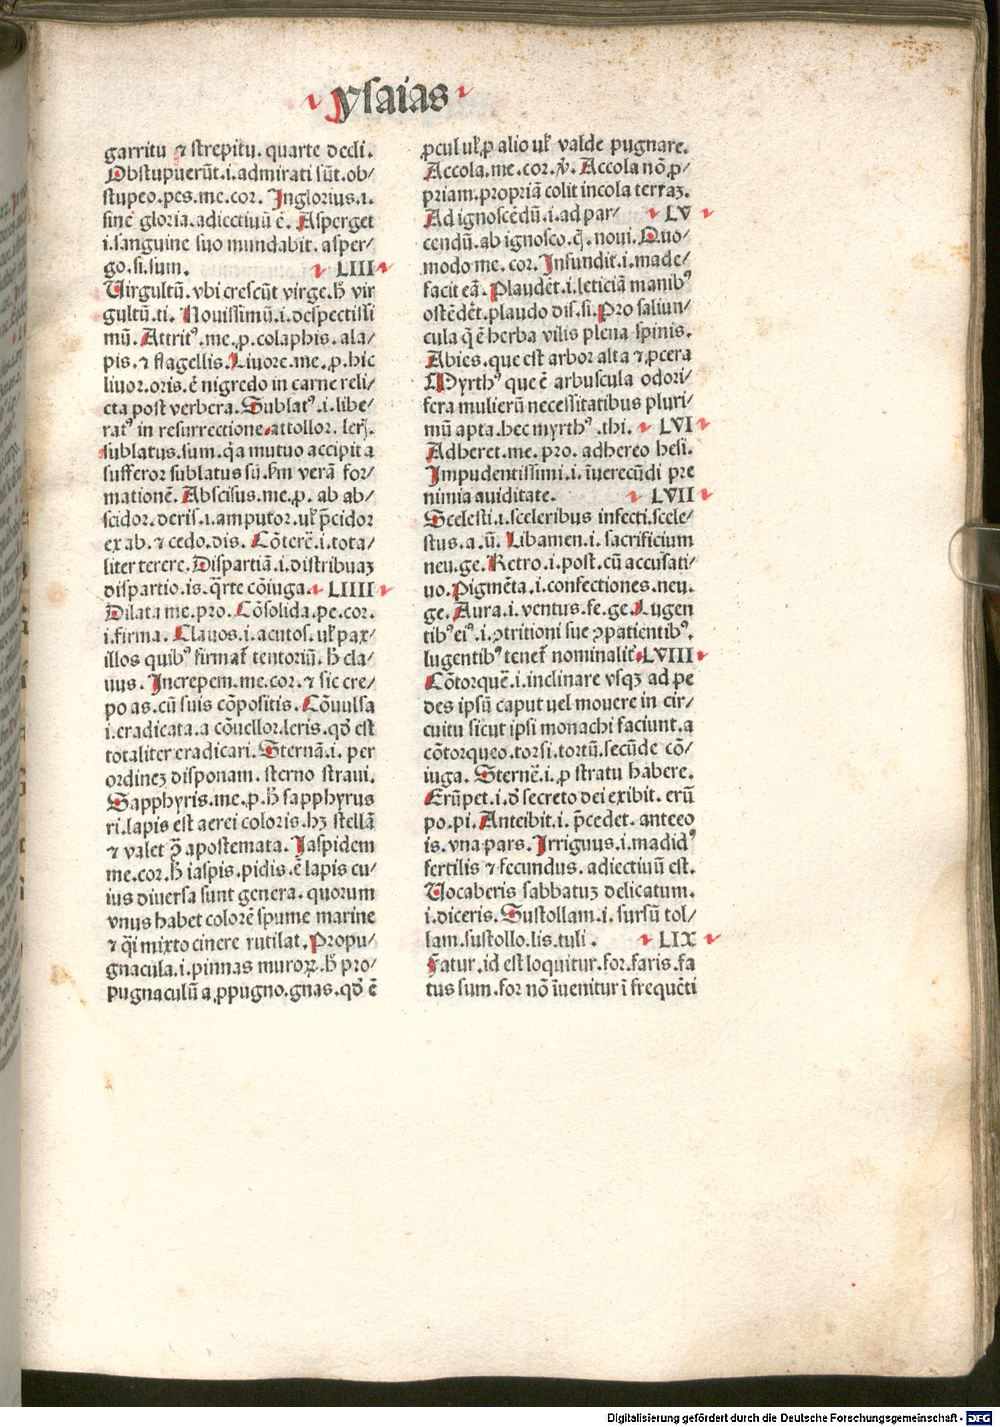 ysaias
garritu ⁊ strepitu. quarte decli.
Obstupuerūt.i.admirati sūt.ob/
stupeo.pes.me.cor. Inglorius.i.
sine gloria.adiectiuū ē. Asperget
i.sanguine suo mundabit. asper/
go.si.sum. LIII
Uirgultū.vbi crescūt virge.h̄ vir
gultū.ti. Nouissimū.i.despectissi
mū. Attritꝰ.me.p.colaphis.ala/
pis.⁊ flagellis.Liuore.me.p.hic
liuor.oris.ē nigredo in carne reli/
cta post verbera.Sublatꝰ.i.libe/
ratꝰ in resurrectione.attollor.
sublatus.sum.q̄a mutuo accipit a
sufferor sublatus sū.sm̄ verā for/
mationē. Abscisus.me.p. ab ab/
scidor.deris.i.amputor.ul' p̄cidor
ex ab.⁊ cedo.dis. Cōterē.i.tota/
liter terere. Dispartiā.i.distribuaꝫ
dispartio.is.q̄rte cōiuga. LIIII
Dilata me.pro. Cōsolida.pe.cor.
i.firma. Clauos.i.acutos.ul' pax/
illos quibꝰ firmat̄ tentoriū. h̄ cla/
uus. Increpem.me.cor.⁊ sic cre/
po as.cū suis cōpositis. Cōuulsa
i.eradicata.a cōuellor.leris.qđ est
totaliter eradicari. Sternā.i. per
ordineꝫ disponam. sterno straui.
Sapphyris.me.p.h̄ sapphyrus
ri.lapis est aerei coloris.hꝫ stellā
⁊ valet ꝯ̄ apostemata. Iaspidem
me.cor.h̄ iaspis.pidis.ē lapis cu/
ius diuersa sunt genera. quorum
vnus habet colorē spume marine
⁊ q̄i mixto cinere rutilat. Propu/
gnacula.i.pinnas muroꝝ.h̄ pro/
pugnaculū a ꝓpugno.gnas.qđ ē
ꝓcul ul' ꝓ alio ul' valde pugnare.
Accola.me.cor.v̄. Accola nō ꝓ/
priam.propriā colit incola terraꝫ.
Ad ignoscēdū.i.ad par/ LV
cendū.ab ignosco.q̄.noui. Quo/
modo me. cor. Infundit.i.made/
facit eā. Plaudēt.i.leticiā manibꝰ
ostēdēt.plaudo dis.si. Pro saliun/
cula q̄ ē herba vilis plena spinis.
Abies.que est arbor alta ⁊ ꝓcera
Myrthꝰ que ē arbuscula odori/
fera mulierū necessitatibus pluri/
mū apta.hec myrthꝰ.thi. LVI
Adheret.me. pro. adhereo hesi.
Impudentissimi.i.īuerecūdi pre
nimia auiditate. LVII
Scelesti.i.sceleribus infecti.scele/
stus.a.ū. Libamen.i.sacrificium
neu.ge. Retro.i.post.cū accusati/
uo.Pigmēta.i.confectiones.neu.
ge. Aura.i.ventus.fe.ge.Lugen
tibꝰ eiꝰ.i.ꝯtritioni sue ꝯpatientibꝰ.
lugentibꝰ tenet̄ nominalit̄. LVIII
Cōtorquē.i.inclinare vsqꝫ ad pe
des ipsū caput uel mouere in cir/
cuitu sicut ipsi monachi faciunt.a
cōtorqueo.torsi.tortū.secūde cō/
iuga. Sternē.i.ꝓ stratu habere.
Erūpet.i.đ secreto dei exibit. erū
po.pi. Anteibit.i. p̄cedet. anteeo
is.vna pars. Irriguus.i.madidꝰ
fertilis ⁊ fecundus. adiectiuū est.
Uocaberis sabbatuꝫ delicatum.
i.diceris. Sustollam.i. sursū tol/
lam.sustollo.lis.tuli. LIX
Fatur.id est loquitur.for.faris.fa
tus sum.for nō īuenitur ī frequēti
Digitalisierung gefördert durch die Deutsche Forschungsgemeinschaft - DFG